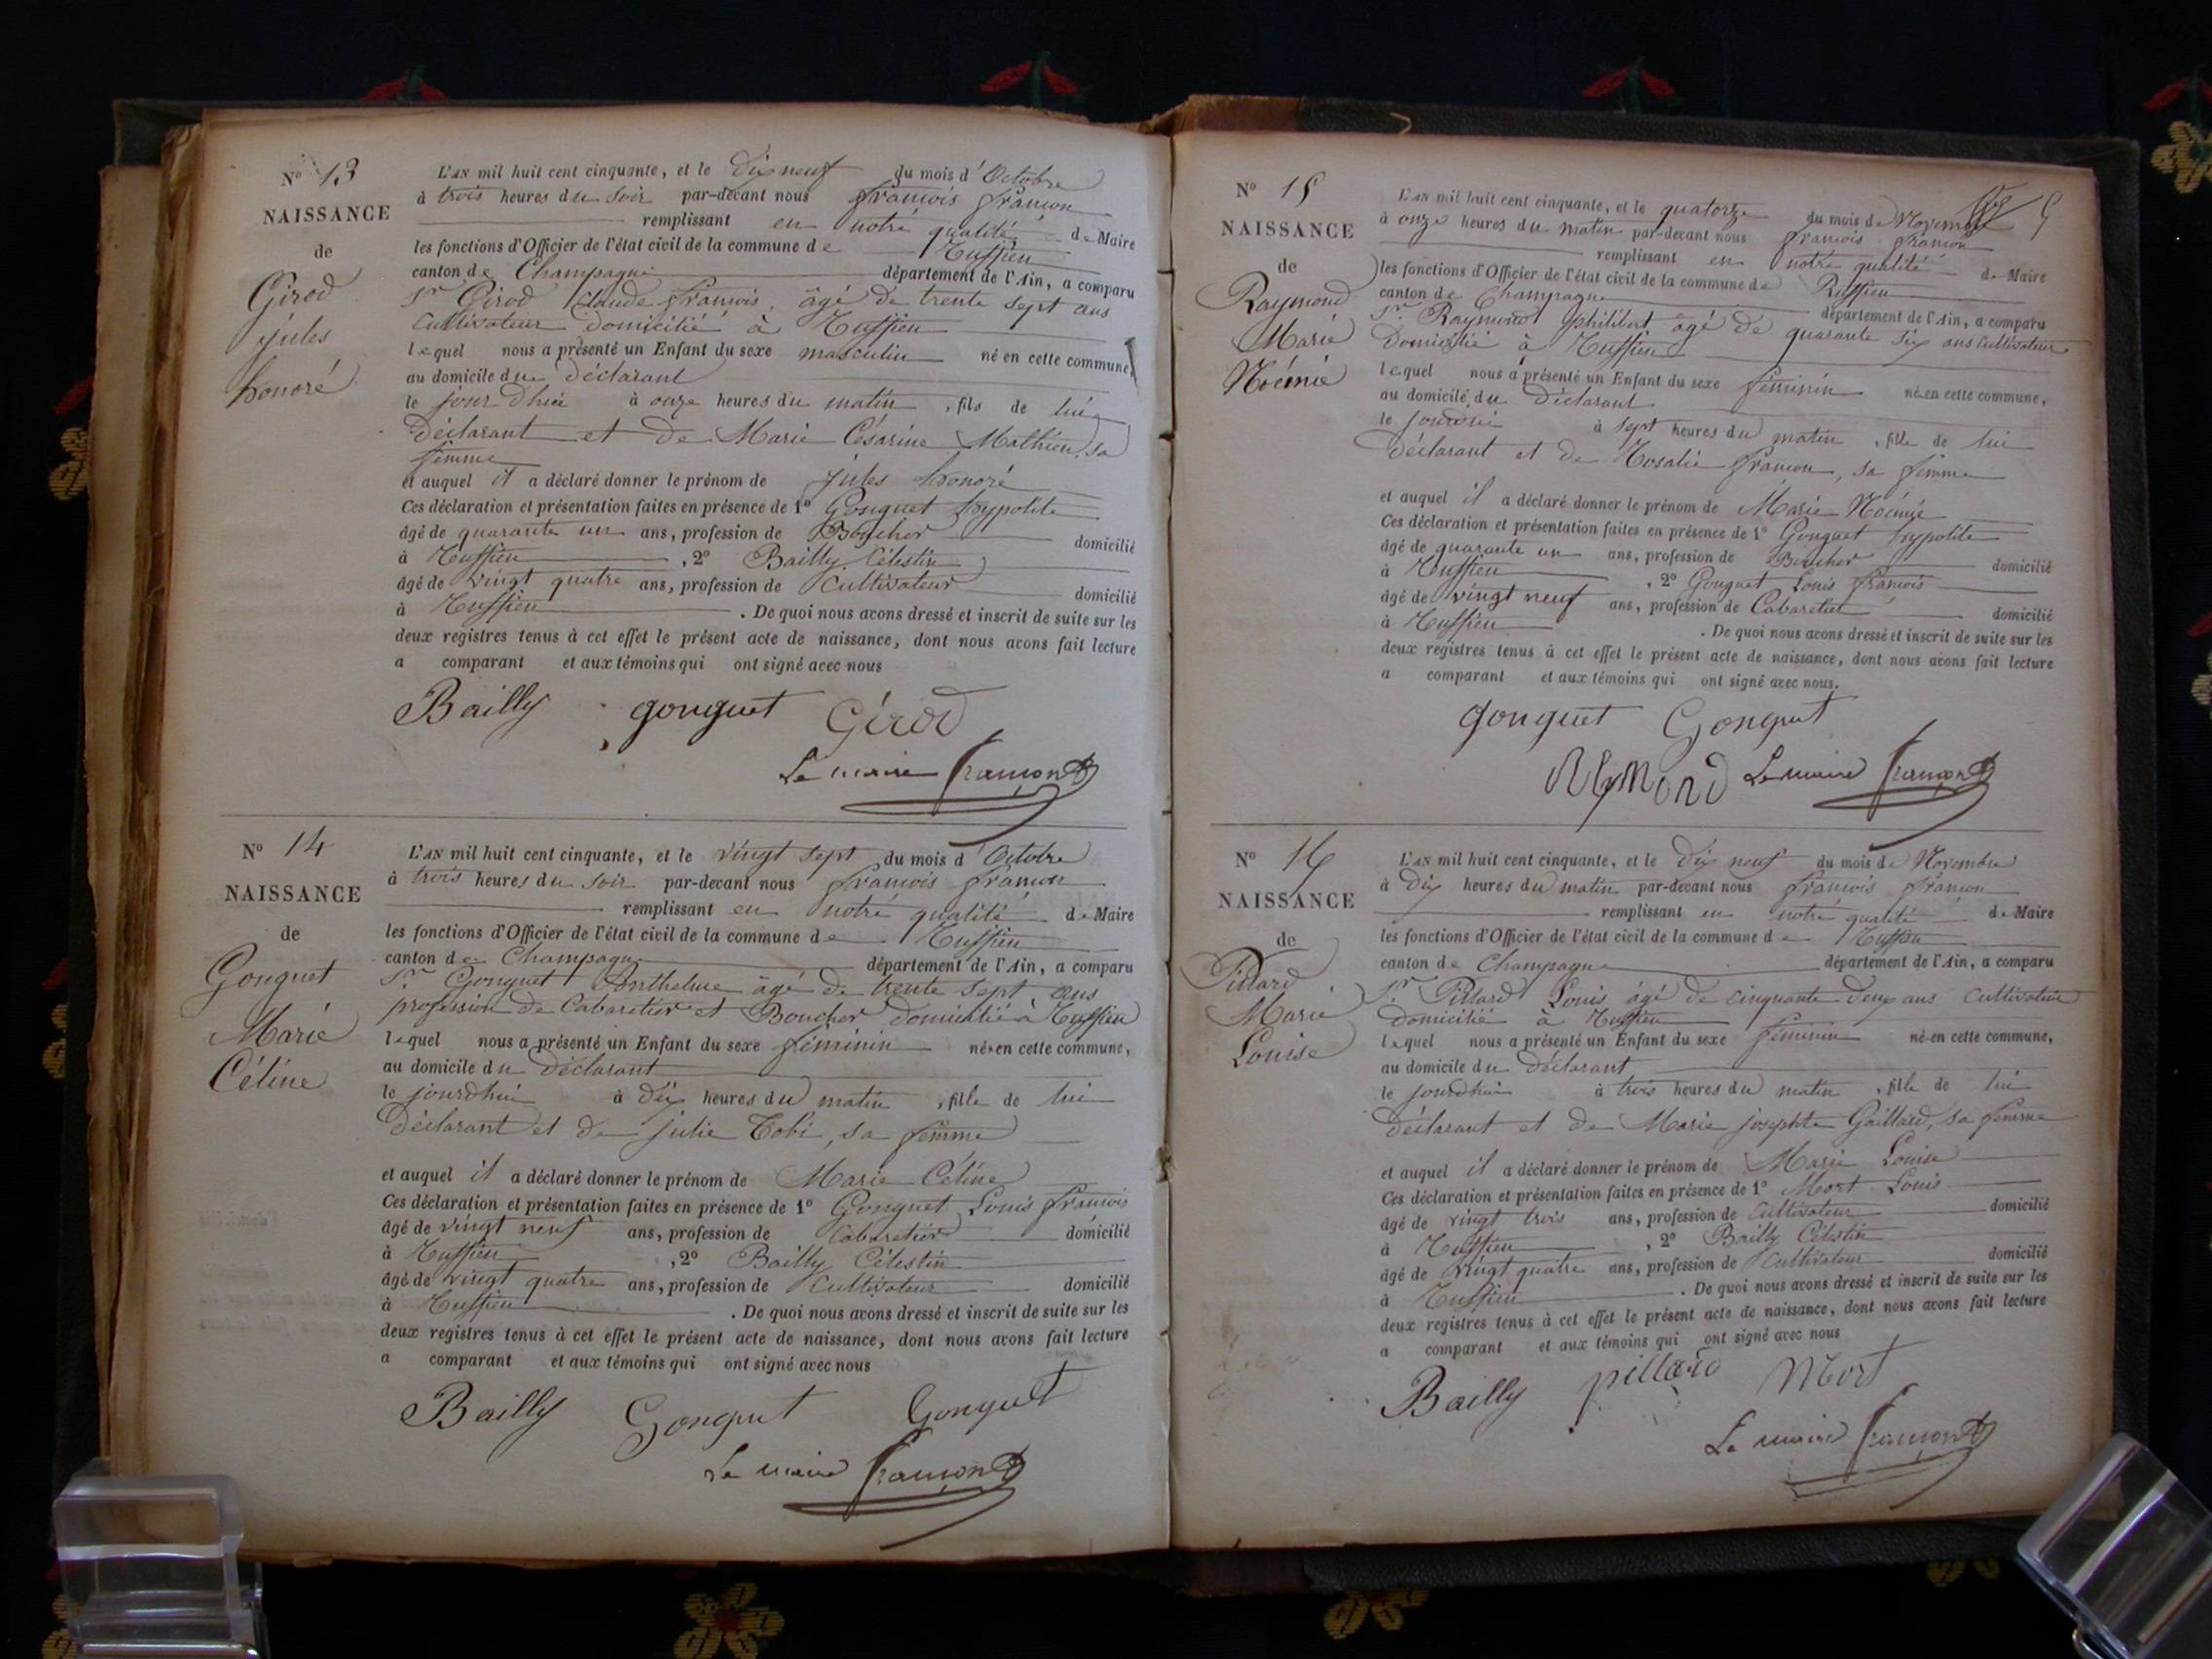 N° 13
NAISSANCE
de
Girod
jules
honoré
L'AN mil huit cent cinquante, et le dix neuf du mois d'Octobre
à trois heures du soir par-devant nous françois françon
remplissant en notre qualité de Maire
les fonctions d'Officier de l'état civil de la commune de Ruffieu
canton de Champagne département de l'Ain, a comparu
Sr Girod Claude françois, âgé de trente sept ans
Cultivateur domicilié à Ruffieu
lequel nous a présenté un Enfant du sexe masculin né en cette commune,
au domicile du déclarant
le jour d'hier à onze heures du matin, fils de lui
Déclarant et de Marie Césarine Mathieu, sa
femme
et auquel il a déclaré donner le prénom de jules honoré
Ces déclaration et présentation faites en présence de 1° Gonguet hypolite
âgé de quarante un ans, profession de Boucher domicilié
à Ruffieu, 2° Bailly Célestin
âgé de vingt quatre ans, profession de Cultivateur domicilié
à Ruffieu. De quoi nous avons dressé et inscrit de suite sur les
deux registres tenus à cet effet le présent acte de naissance, dont nous avons fait lecture
a comparant et aux témoins qui ont signé avec nous
Bailly gonguet Girod
Le maire françon
N° 14
NAISSANCE
de
Gonguet
Marie
Céline
L'AN mil huit cent cinquante, et le vingt sept du mois d'Octobre
à trois heures du soir par-devant nous françois françon
remplissant en notre qualité de Maire
les fonctions d'Officier de l'état civil de la commune de Ruffieu
canton de Champagne département de l'Ain, a comparu
Sr Gonguet Anthelme âgé de trente sept ans
profession de Cabaretier et Boucher domicilié à Ruffieu
lequel nous a présenté un Enfant du sexe féminin née en cette commune,
au domicile du Déclarant
le jourdhui à dix heures du matin, fille de lui
Déclarant et de julie Tobi, sa femme
et auquel il a déclaré donner le prénom de Marie Céline
Ces déclaration et présentation faites en présence de 1° Gonguet Louis françois
âgé de vingt neuf ans, profession de Cabaretier domicilié
à Ruffieu, 2° Bailly Célestin
âgé de vingt quatre ans, profession de Cultivateur domicilié
à Ruffieu. De quoi nous avons dressé et inscrit de suite sur les
deux registres tenus à cet effet le présent acte de naissance, dont nous avons fait lecture
a comparant et aux témoins qui ont signé avec nous
Bailly Gonguet Gonguet
Le maire françon
N° 15
NAISSANCE
de
Raymond
Marie
Noémie
L'AN mil huit cent cinquante, et le quatorze du mois de Novembre
à onze heures du matin par-devant nous françois françon
remplissant en notre qualité de Maire
les fonctions d'Officier de l'état civil de la commune de Ruffieu
canton de Champagne département de l'Ain, a comparu
Sr Raymond philibert âgé de quarante six ans Cultivateur
Domicilié à Ruffieu
lequel nous a présenté un Enfant du sexe féminin née en cette commune,
au domicile du Déclarant
le jourdhui à sept heures du matin, fille de lui
Déclarant et de Rosalie françon, sa femme
et auquel il a déclaré donner le prénom de Marie Noémie
Ces déclaration et présentation faites en présence de 1° Gonguet hypolite
âgé de quarante un ans, profession de Boucher domicilié
à Ruffieu, 2° Gonguet Louis françois
âgé de vingt neuf ans, profession de Cabaretier domicilié
à Ruffieu. De quoi nous avons dressé et inscrit de suite sur les
deux registres tenus à cet effet le présent acte de naissance, dont nous avons fait lecture
a comparant et aux témoins qui ont signé avec nous.
gonguet Gonguet
Le maire françon
N° 16
NAISSANCE
de
Pillard
Marie
Louise
L'AN mil huit cent cinquante, et le Dix neuf du mois de Novembre
à Dix heures du matin par-devant nous françois françon
remplissant en notre qualité de Maire
les fonctions d'Officier de l'état civil de la commune de Ruffieu
canton de Champagne département de l'Ain, a comparu
Sr Pillard Louis âgé de cinquante deux ans Cultivateur
domicilié à Ruffieu
lequel nous a présenté un Enfant du sexe féminin née en cette commune,
au domicile du déclarant
le jourdhui à trois heures du matin, fille de lui
déclarant et de Marie josephte Gaillard, sa femme
et auquel il a déclaré donner le prénom de Marie Louise
Ces déclaration et présentation faites en présence de 1° Mort Louis
âgé de vingt trois ans, profession de Cultivateur domicilié
à Ruffieu, 2° Bailly Célestin
âgé de vingt quatre ans, profession de Cultivateur domicilié
à Ruffieu. De quoi nous avons dressé et inscrit de suite sur les
deux registres tenus à cet effet le présent acte de naissance, dont nous avons fait lecture
a comparant et aux témoins qui ont signé avec nous
Bailly pillard Mort
Le maire françon